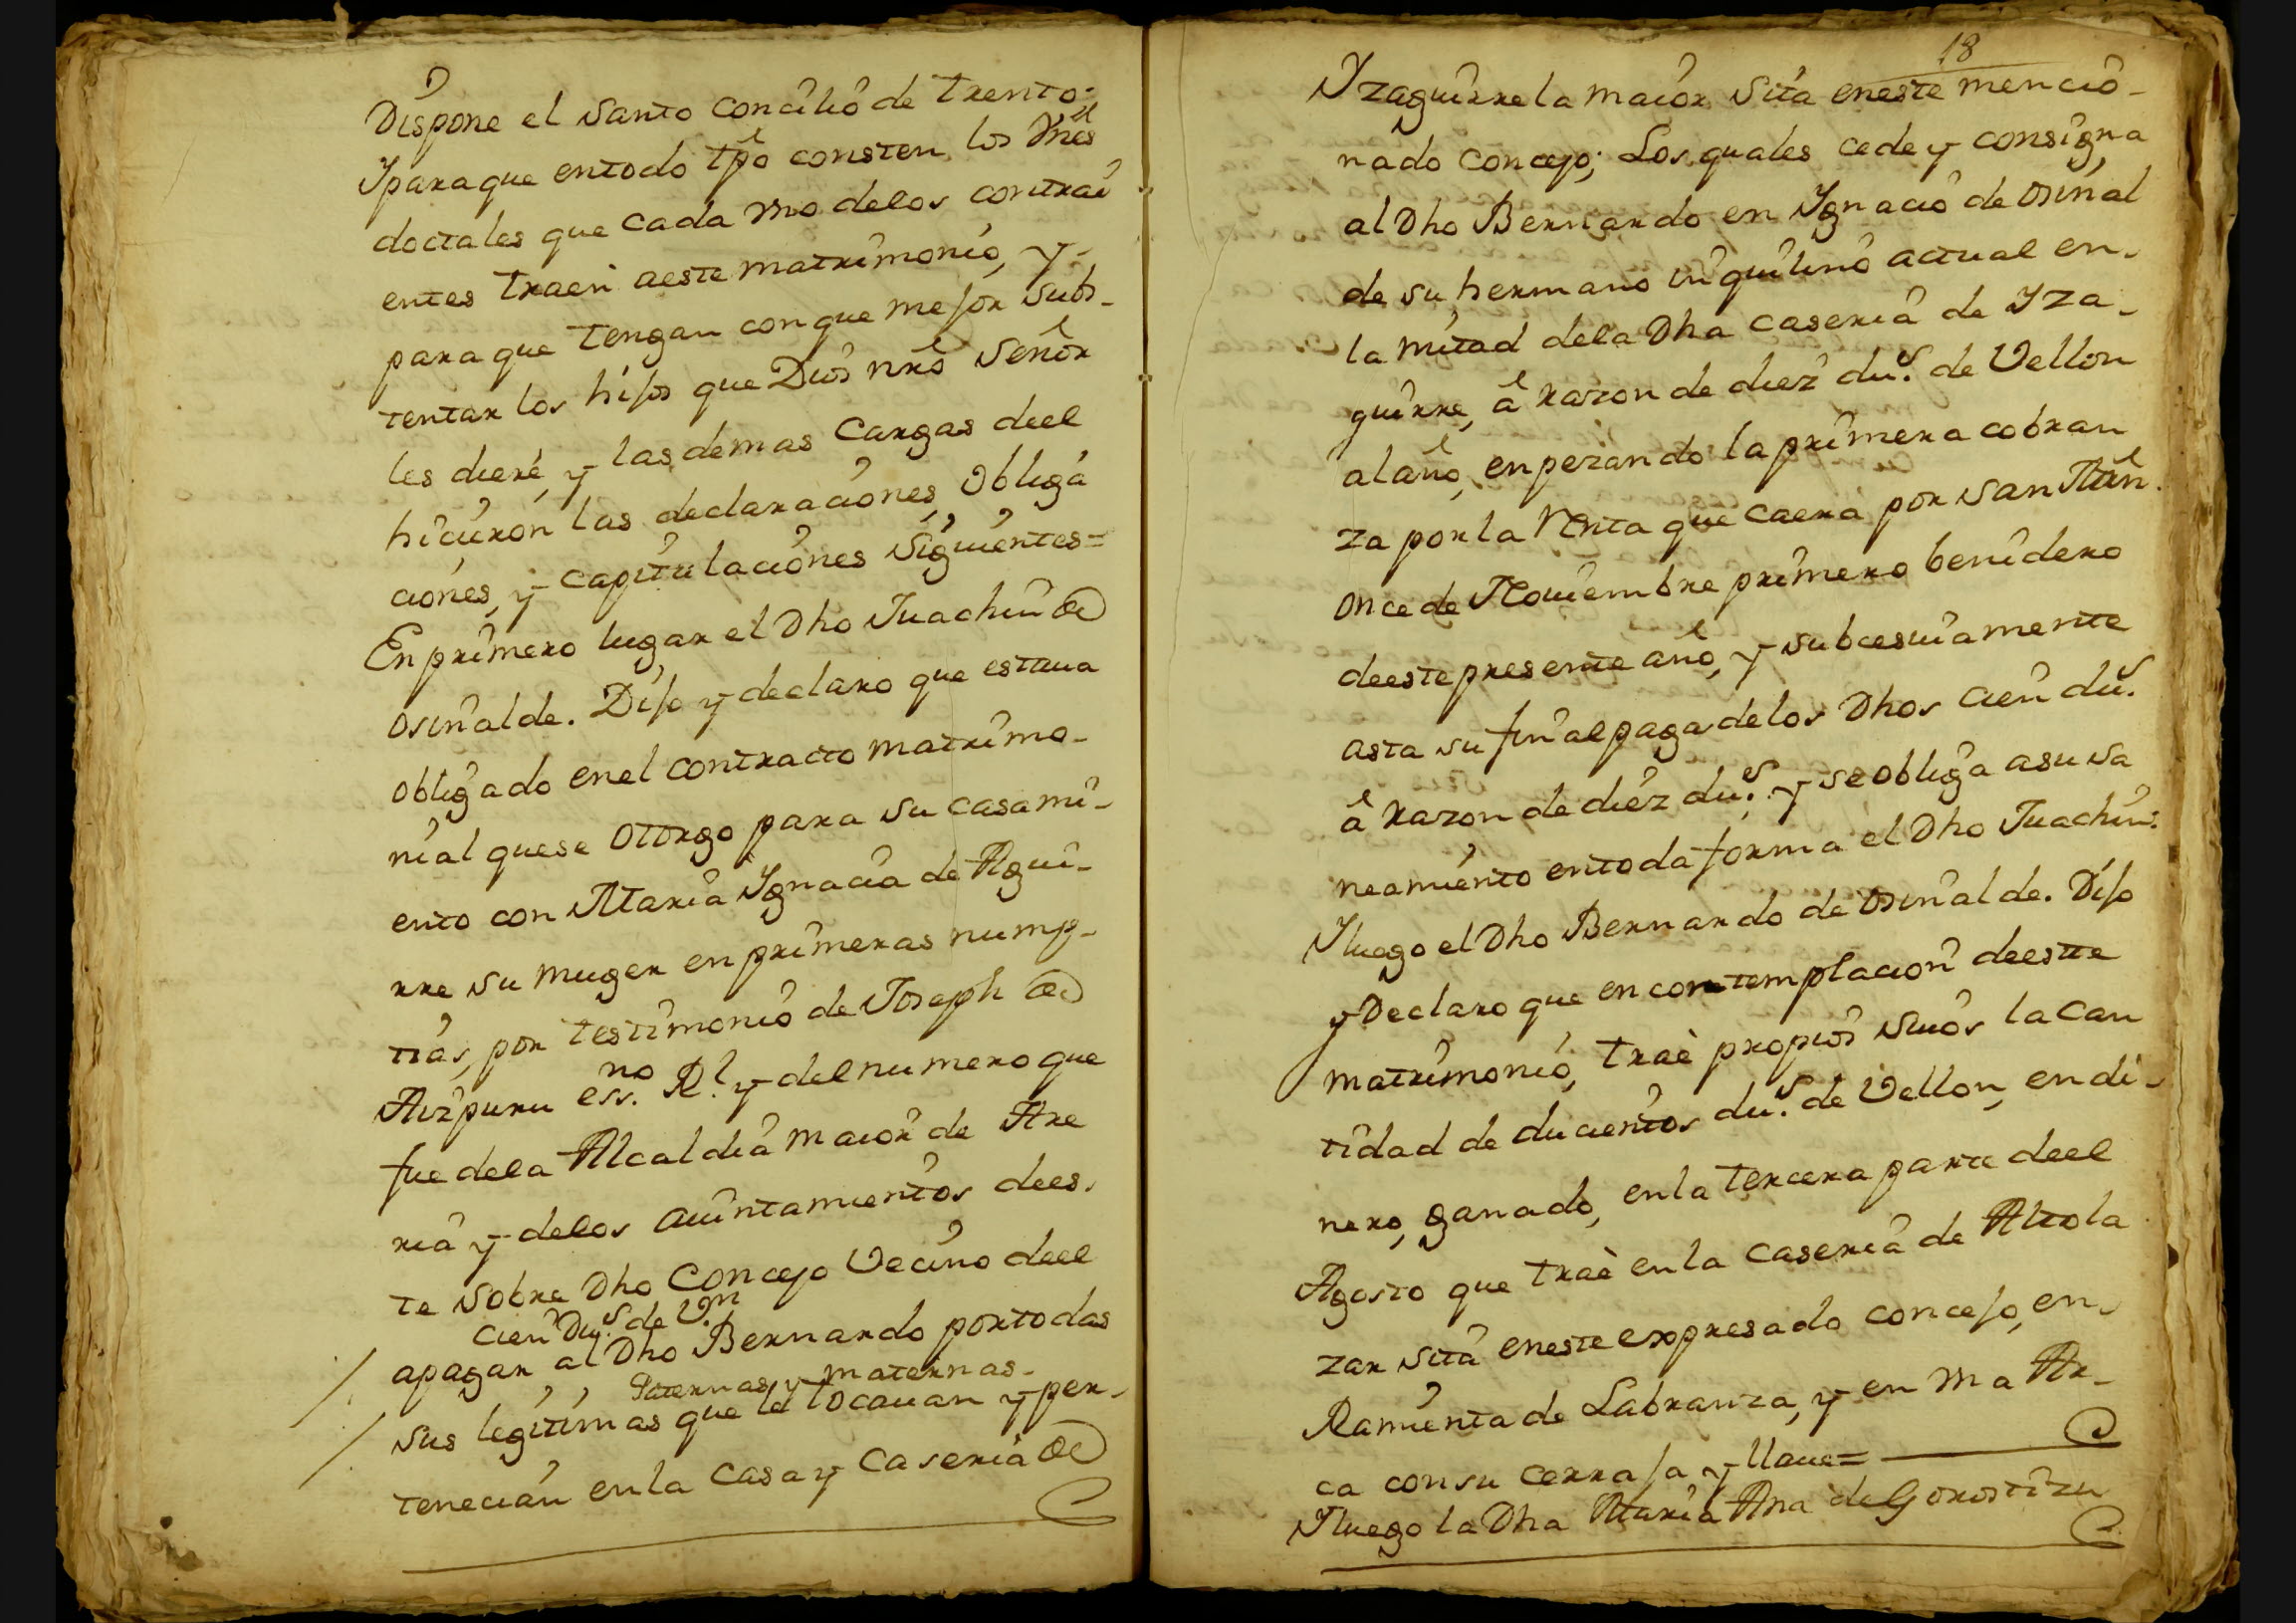 Dispone el Santo concilio de trento=
Yparaque entodo tpo consten los Vnes
doctales que cada vno delos contrai
entes traen aeste matrimonio, y-
paraque tengan conque mejor subs-
tentar los hijos que Dios nro Señor
les diere, y las demas Cargas deel
hicieron las declaraciones, obliga
ciones, y capitulaciones siguientes=
En primero lugar el Dho Juachin de
osinalde. Dijo y declaro que estaua
obligado enel contracto matrimo-
nial quese otorgo para su casami-
ento con Maria Ygnacia de Agui-
rre su muger en primeras nump-
tias, por testimonio de Joseph de
Aizpuru ess.no Rl. y del numero que
fue dela Alcaldia maior de Are
ria y delos auintamientos dees.
te sobre Dho Concejo Vecino deel
cien Dus. de V.n
apagar al Dho Bernardo portodas
Paternas y maternas-
sus legitimas que le tocauan y per-
tenecian enla Casa y Caseria de
18
Yzaguirre la maior sita eneste mencio-
nado concejo; Los quales cede y consigna
al Dho Bernardo en Ygnacio de osinal
de su hermano inquilino actual en-
la mitad dela Dha caseria de Yza-
guirre, â razon de diez dus. de Vellon
alaño, enpezando la primera cobran
za por la renta que caera por san Min.
once de Nouiembre primero benidero
deeste presente año, y subcesuiamente
asta su final paga delos Dhos cien dus.
â razon de diez dus. y se obliga asu sa
neamiento entoda forma el Dho Juachin.
Yluego el Dho Bernardo de osinalde. Dijo
y Declaro que en contemplacion deeste
matrimonio, traè propios suios la Can
tidad de ducientos dus. de Vellon, en di-
nero, ganado, enla tercera parte deel
Agosto que traè enla caseria de Altola
zar sita eneste expresado concejo, en-
Ramienta de Labranza, y en vna Ar-
ca consu cerraja y llaue=
Yluego la Dha Maria Ana de Gorostizu